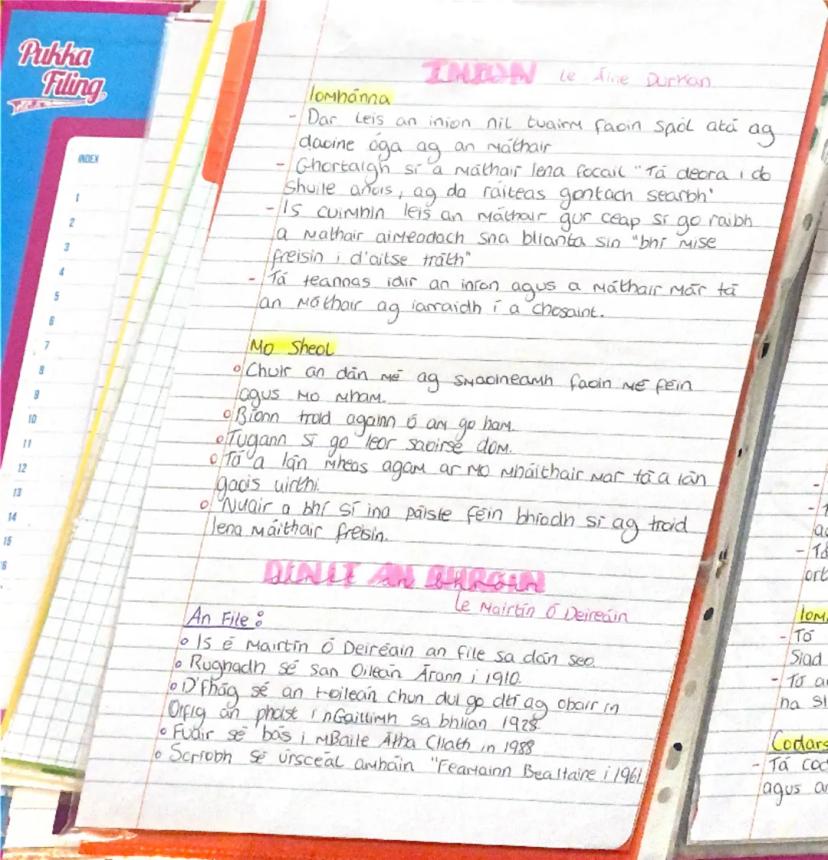 Pukka
Filing
INDEX
1
2
3
4
5
6
7
8
9
10
11
12
13
14
15
INÍON le Áine Durkan
Íomhánna
- Dar leis an iníon níl tuairm faoin spól atá ag
daoine óga ag an máthair
- Ghortaigh sí a máthair lena focail "Tá deora i do
shuile anois, ag da ráiteas gontach searbh'
- Is cuimhin leis an máthair gur ceap sí go raibh
a mathair aimeodach sna blianta sin "bhí mise
freisin i d'aitse tráth"
- Tá teannas idir an iníon agus a máthair mar tá
an máthair ag iarraidh í a chosaint.
Mo Sheol
Chuir an dán mé ag smaoineamh faoin mé féin
agus mo mham.
Bíonn troid againn ó am go ham.
Tugann sí go leor saoirse dom.
Tá a lán mheas agam ar mo mháithair mar tá a lán
gaois uirthi.
Nuair a bhí sí ina páiste féin bhíodh sí ag troid
lena máithair freisin.
AN BHRÓIN
le Máirtín Ó Deireáin
An File:
Is é Máirtín Ó Deireáin an file sa dán seo.
Rugnadh sé san Oileán Árann i 1910.
D'fhág sé an t-oileán chun dul go dtí ag obair in
Oifig an phoist i nGaillimh sa bhlian 1928.
Fuair sé bás i mBaile Átha Cliath in 1988
Scríobh sé úrscéal amháin "Feamainn Bealtaine i 1961
- Tá
Siad
- Tá
na
Codars
- Tá cod
agus